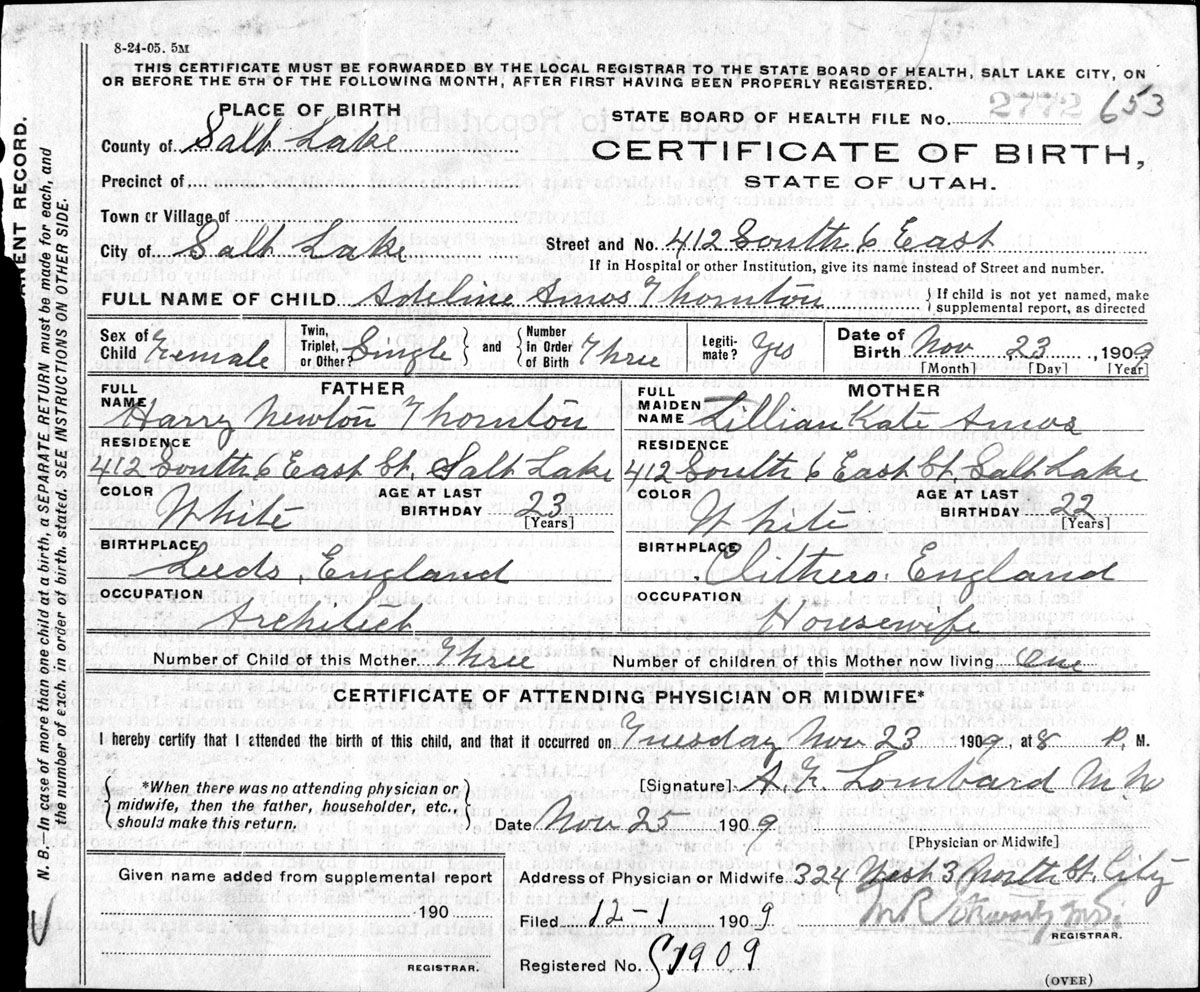 8-24-05. 5M
THIS CERTIFICATE MUST BE FORWARDED BY THE LOCAL REGISTRAR TO THE STATE BOARD OF HEALTH, SALT LAKE CITY, ON
OR BEFORE THE 5TH OF THE FOLLOWING MONTH, AFTER FIRST HAVING BEEN PROPERLY REGISTERED.
PLACE OF BIRTH
STATE BOARD OF HEALTH FILE No. 2772 653
County of Salt Lake
CERTIFICATE OF BIRTH,
Precinct of
STATE OF UTAH.
Town or Village of
City of Salt Lake Street and No. 412 South 6 East
If in Hospital or other Institution, give its name instead of Street and number.
FULL NAME OF CHILD Adeline Amos Thornton { If child is not yet named, make
supplemental report, as directed
Sex of Child Female Twin, Triplet, or Other? Single } and { Number in Order of Birth Three Legiti-mate? Yes Date of Birth Nov 23, 1909
[Month] [Day] [Year]
FATHER
FULL NAME Harry Newton Thornton
RESIDENCE
412 South 6 East St. Salt Lake
COLOR White AGE AT LAST BIRTHDAY 23 [Years]
BIRTHPLACE
Leeds, England
OCCUPATION
Architect
MOTHER
FULL MAIDEN NAME Lillian Kate Amos
RESIDENCE
412 South 6 East St. Salt Lake
COLOR White AGE AT LAST BIRTHDAY 22 [Years]
BIRTHPLACE
Clithero. England
OCCUPATION
Housewife
Number of Child of this Mother Three Number of children of this Mother now living One
CERTIFICATE OF ATTENDING PHYSICIAN OR MIDWIFE*
I hereby certify that I attended the birth of this child, and that it occurred on Tuesday Nov 23 1909, at 8 P. M.
{ *When there was no attending physician or
midwife, then the father, householder, etc.,
should make this return. }
[Signature] A. F. Lombard M D
Date Nov 25 1909
[Physician or Midwife]
Given name added from supplemental report
190
REGISTRAR.
Address of Physician or Midwife 324 West 3 North St. City
Filed 12-1 1909
REGISTRAR.
Registered No. 1909
(OVER)
N. B.—In case of more than one child at a birth, a SEPARATE RETURN must be made for each, and
the number of each, in order of birth, stated. SEE INSTRUCTIONS ON OTHER SIDE.
RECORD.